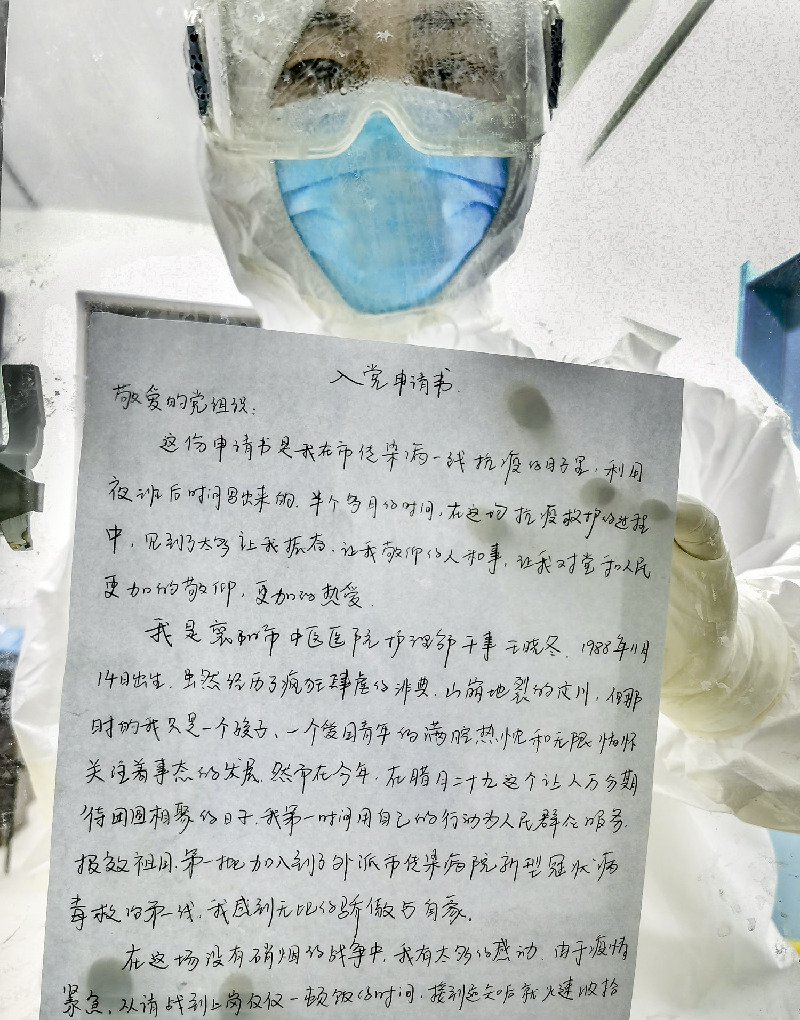 入党申请书.
敬爱的党组织:
这份申请书是我在市传染病一线抗疫的日子里，利用
夜班后时间写出来的. 半个多月的时间，在这场抗疫救护的过程
中，见到了太多让我振奋、让我敬仰的人和事，让我对党和人民
更加的敬仰，更加的热爱.
我是襄阳市中医医院护理部干事王晓冬. 1988年11月
14日出生. 虽然经历了疯狂肆虐的非典，山崩地裂的汶川，但那
时的我只是一个孩子、一个爱国青年的满腔热忱和无限情怀
关注着事态的发展. 然而在今年，在腊月二十九这个让人万分期
待团圆相聚的日子，我第一时间用自己的行动为人民群众服务，
报效祖国. 第一批加入到了外派市传染病医院新型冠状病
毒救治第一线，我感到无比的骄傲与自豪.
在这场没有硝烟的战争中，我有太多的感动. 由于疫情
紧急，从请战到上岗仅仅一顿饭的时间，接到通知后就火速收拾